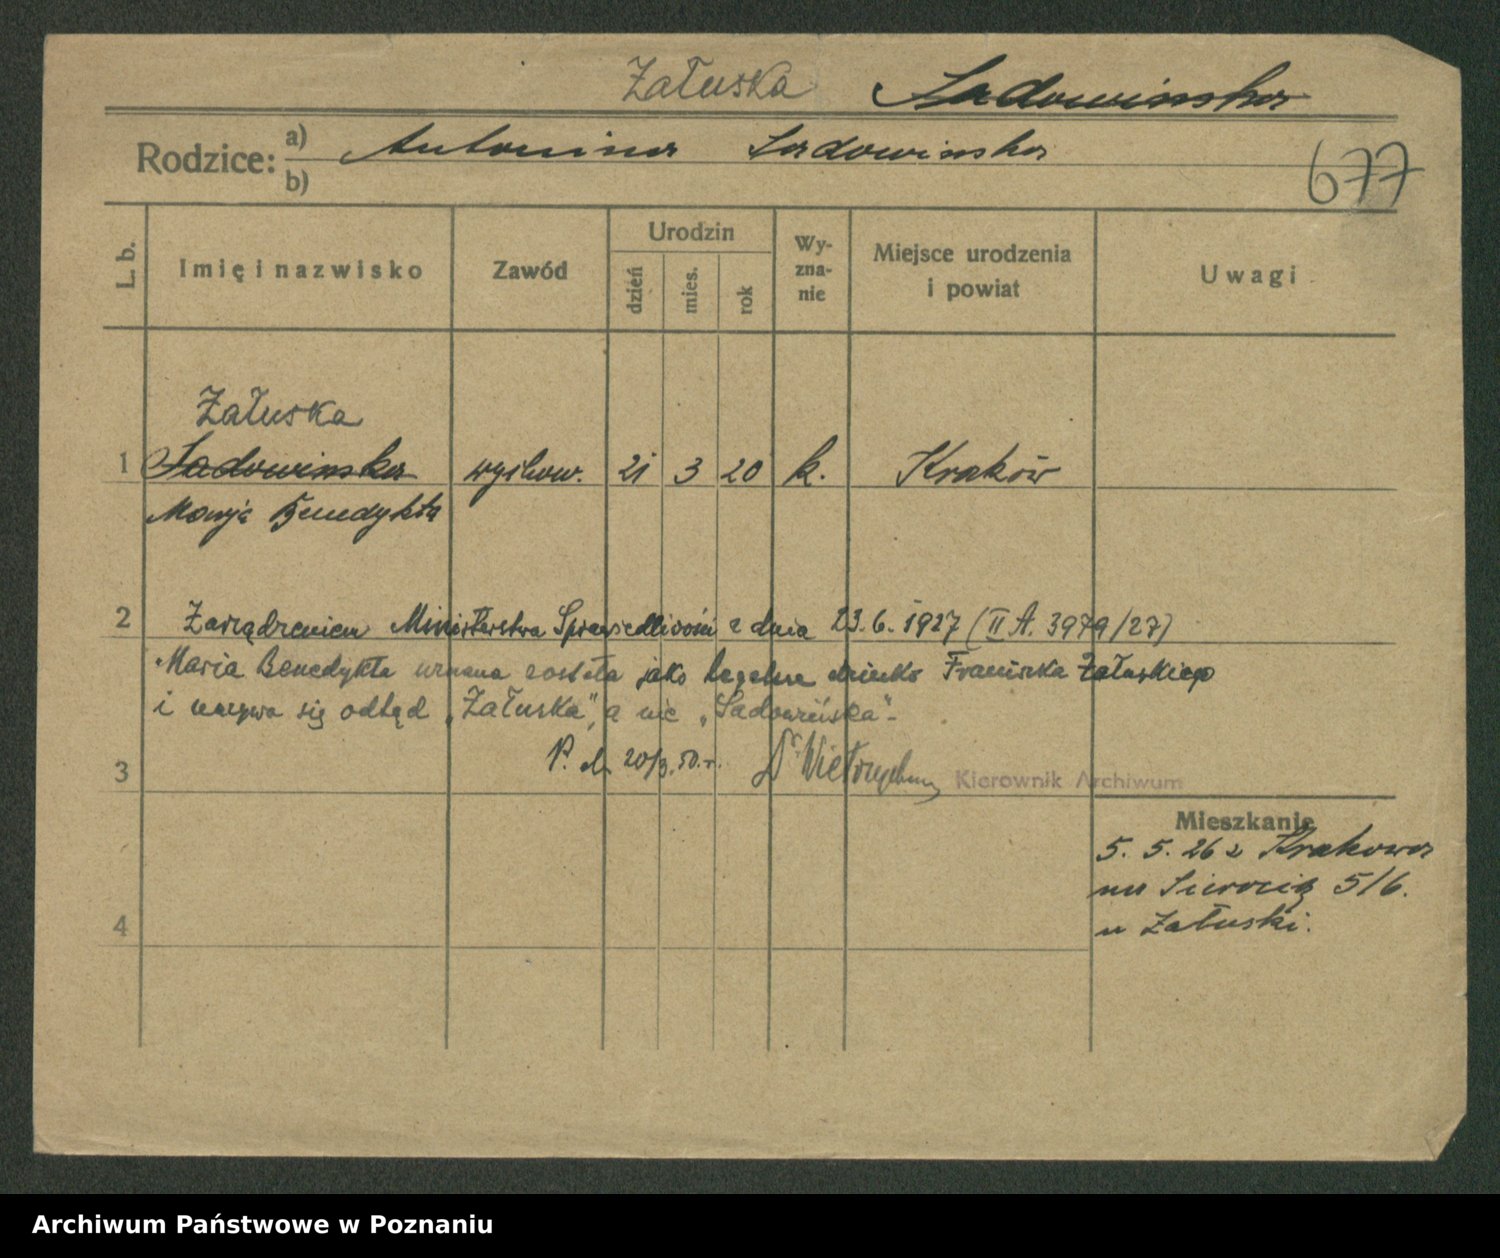 Załuska Sadowinska
Rodzice: a) Antonina Sadowinska
b)
677
L. b.
Imię i nazwisko
Zawód
Urodzin
dzień
mies.
rok
Wy-
zna-
nie
Miejsce urodzenia
i powiat
Uwagi
Załuska
1 Sadowinska wychow. 21 3 20 k. Kraków
Marja Benedykta
2 Zarządzeniem Ministerstwa Sprawiedliwości z dnia 23.6.1927 (II A. 3979/27)
Maria Benedykta uznana została jako legalne dziecko Franciszka Załuskiego
i nazywa się odtąd „Załuska", a nie „Sadowińska"-
P. d. 20/3.50.r. Dr Kierownik Archiwum
3
Mieszkanie
5. 5. 26 z Krakowa
na Sierocią 5/6.
u Załuski.
4
Archiwum Państwowe w Poznaniu